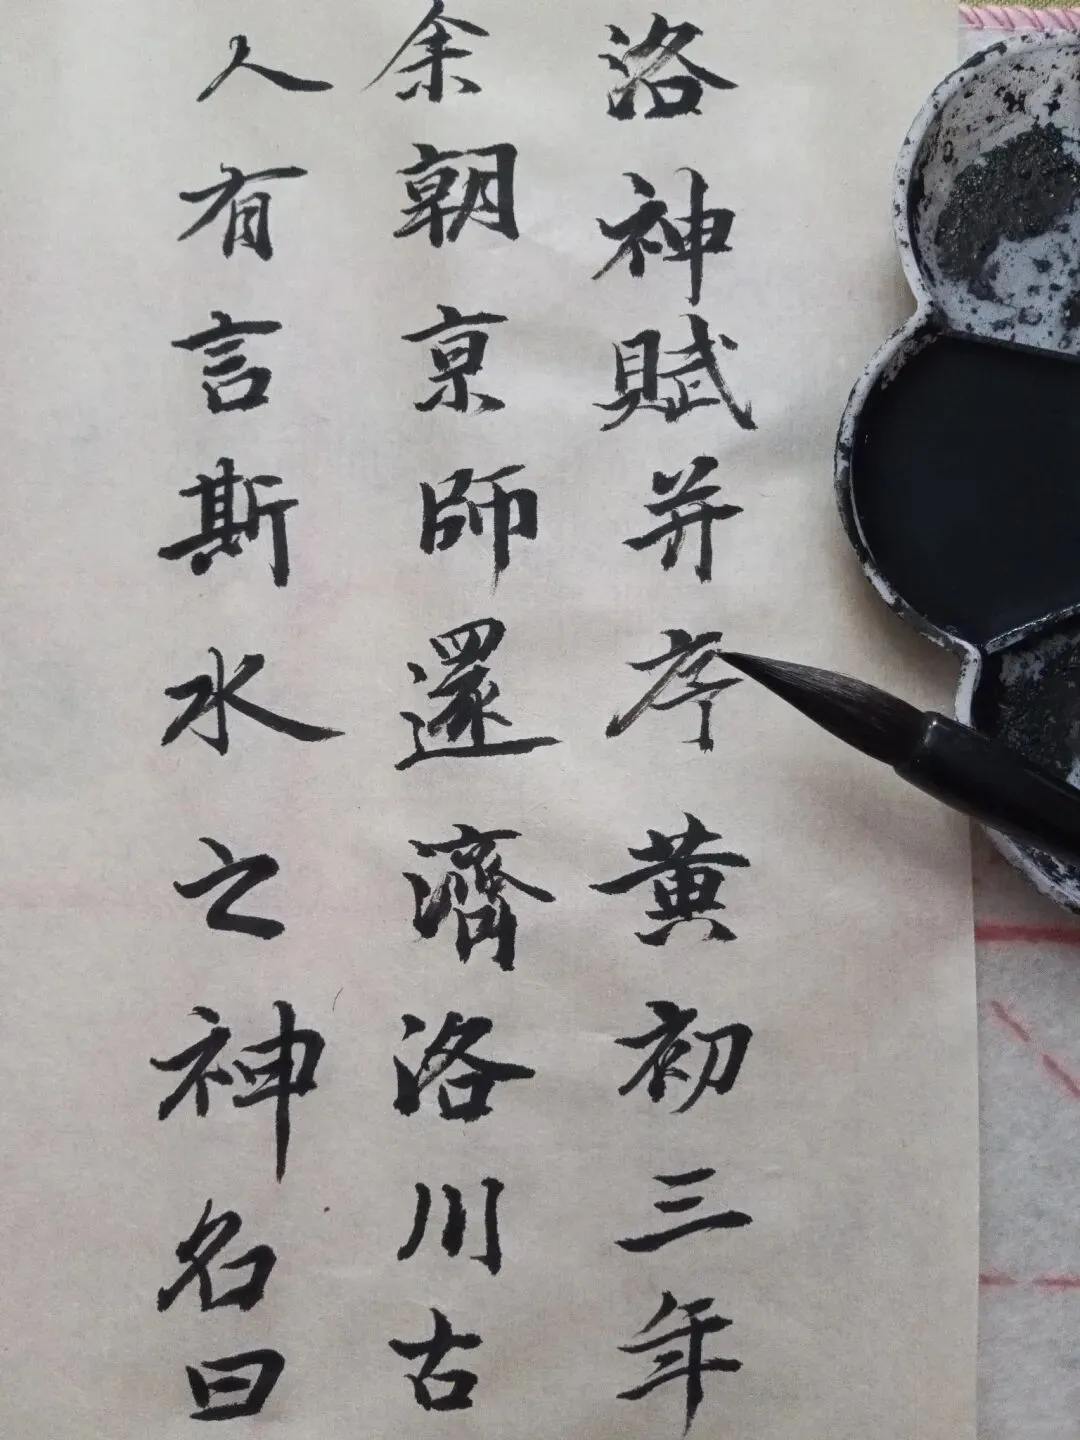 洛神賦并序黄初三年
余朝京師還濟洛川古
人有言斯水之神名曰